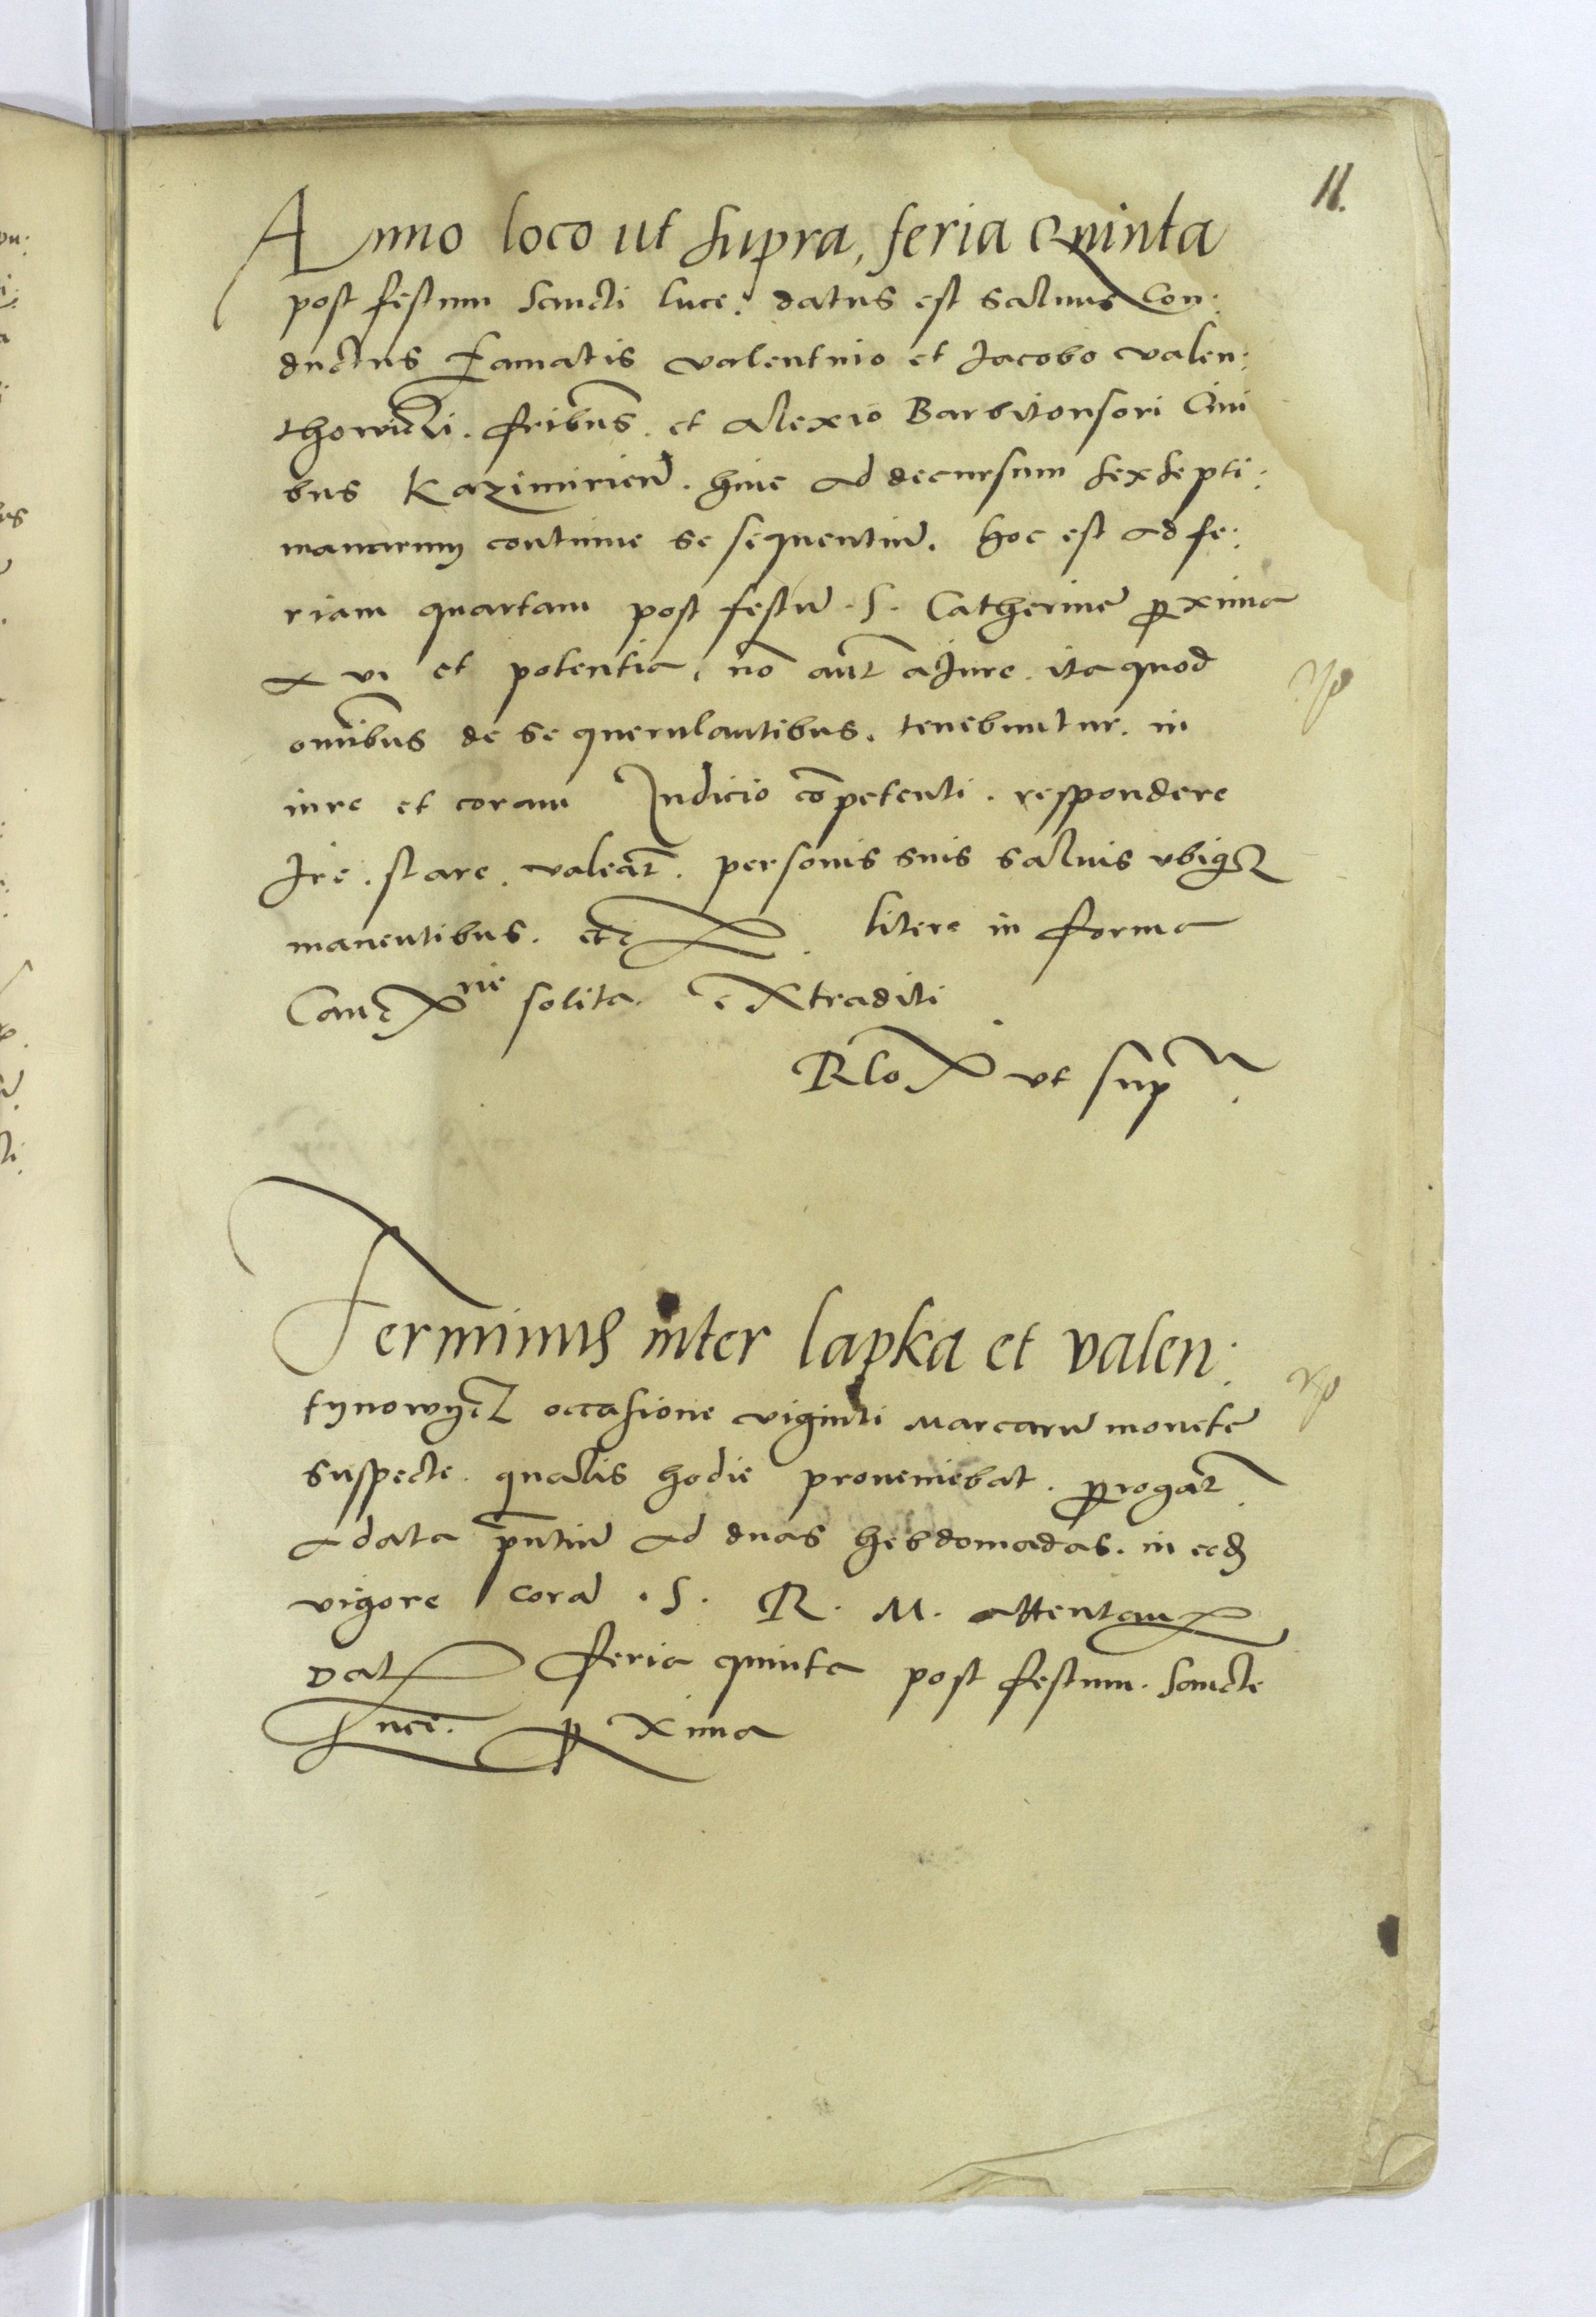 11.
Anno loco ut supra, feria Quinta
post festum Sancti luce. datus est saluus Con:
ductus Famatis valentino et Jacobo valen:
thowiczi. fribus. et Alexio Barbitonsori Ciui
bus Kazimirien. hinc ad decursum sex septi:
manarum continue se sequentiu. hoc est ad fe:
riam quartam post festu. S. Catherine proxima
a vi et potentia, no aut a Jure. ita quod
omibus de se querulantibus. tenebuntur. in
iure et coram Judicio competenti. respondere
Ire. stare. valeat. personis suis saluis vbiq
manentibus. etc. litere in forma
Canc ne solita. extraditi
Rlo ut sup
Terminus inter lapka et valen:
tynowycz occasione viginti Marcaru monete
suspecte. qualis hodie proueniebat. prorogat
a data pntiu ad duas hebdomadas. in eod
vigore cora. S. R. M. attentan
Dat feria quinta post festum. Sancte
Luce. proxima